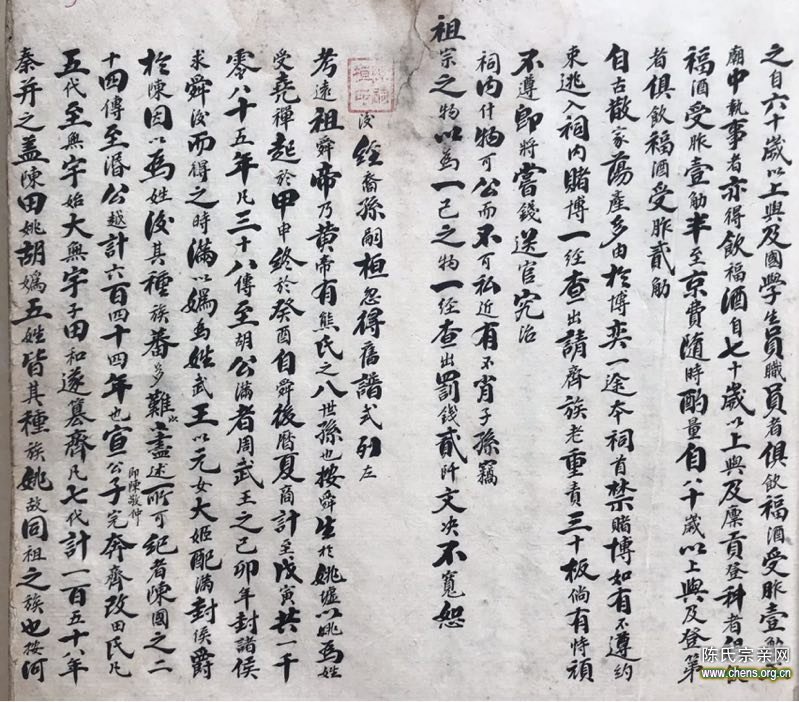 之自六十歲以上與及國學生員職員者俱飲福酒受胙壹觔
廟中執事者亦得飲福酒自七十歲以上與及廩貢登科者俱飲
福酒受胙壹觔半至京費随時酌量自八十歲以上與及登第
者俱飲福酒受胙貳觔
自古散家蕩產多由於博奕一途本祠首禁賭博如有不遵約
束逃入祠内賭博一经查出請齊族老重責三十板倘有恃頑
不遵即將嘗錢送官究治
祠内什物可公而不可私近有不肖子孫竊
祖宗之物以為一己之物一经查出罰錢貳阡文决不寬恕
後经裔孫嗣桓忽得舊譜式列左
考逺祖舜帝乃黄帝有熊氏之八世孫也按舜生於姚墟以姚為姓
受堯禪起於甲申終於癸酉自舜後曆夏商計至戊寅共一千
零八十五年凡三十八傳至胡公滿者周武王之己卯年封諸侯
求舜後而得之時滿以媯為姓武王以元女大姬配滿封侯爵
於陳因以為姓後其種族蕃多難以盡述所可紀者陳國之二
十四傳至湣公越計六百四十四年也宣公子完即陳敬仲奔齊改田氏凡
五代至無宇始大無宇子田和遂篡齊凡七代計一百五十八年
秦并之盖陳田姚胡媯五姓皆其種族姚故同祖之族也按河
陈氏宗亲网
www.chens.org.cn